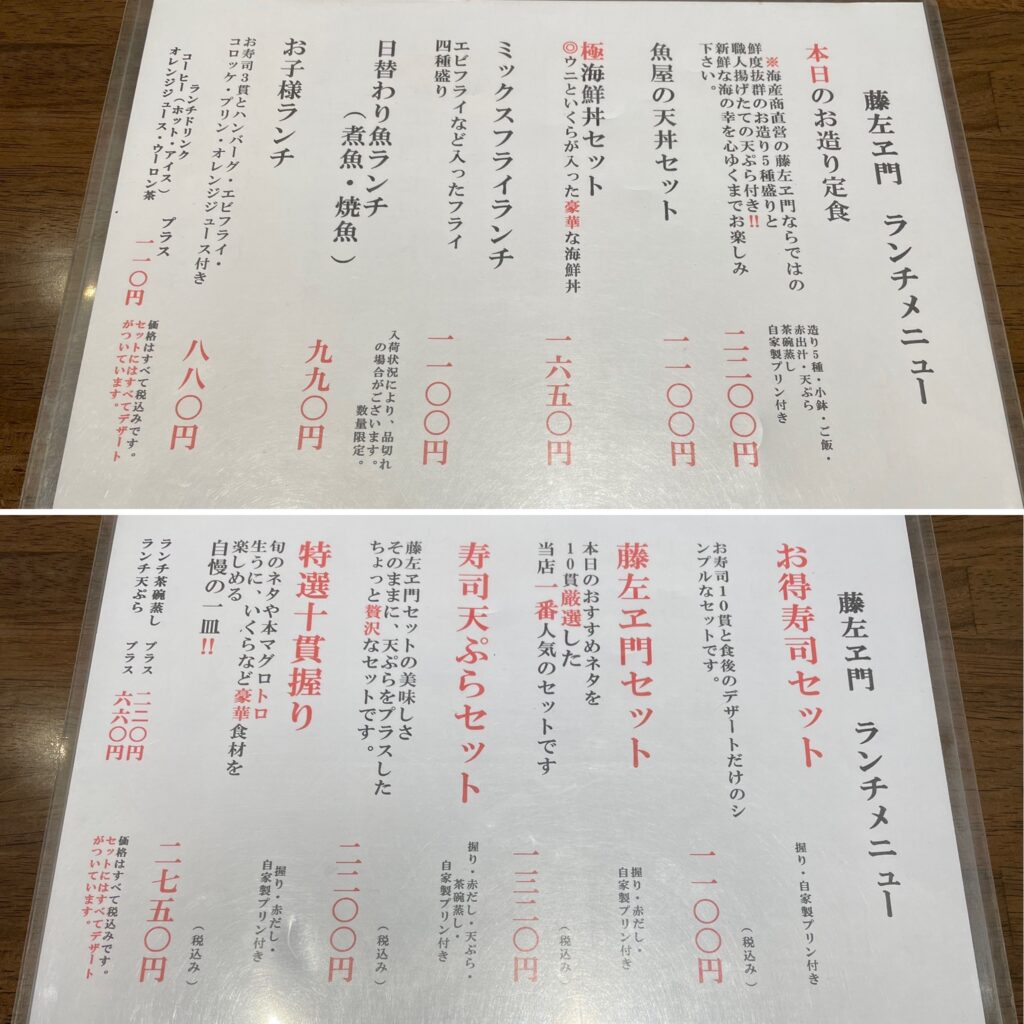 藤左ヱ門 ランチメニュー
本日のお造り定食
※海産商直営の藤左ヱ門ならではの
鮮度抜群のお造り5種盛りと
職人揚げたての天ぷら付き!!
新鮮な海の幸を心ゆくまでお楽しみ
下さい。
造り5種・小鉢・ご飯・
赤出汁・天ぷら
茶碗蒸し
自家製プリン付き
二二〇〇円
魚屋の天丼セット
一一〇〇円
極海鮮丼セット
◎ウニといくらが入った豪華な海鮮丼
一六五〇円
ミックスフライランチ
エビフライなど入ったフライ
四種盛り
一一〇〇円
日替わり魚ランチ
（煮魚・焼魚）
入荷状況により、品切れ
の場合がございます。
数量限定。
九九〇円
お子様ランチ
お寿司3貫とハンバーグ・エビフライ・
コロッケ・プリン・オレンジジュース付き
八八〇円
ランチドリンク
コーヒー（ホット・アイス）
オレンジジュース・ウーロン茶
プラス
一一〇円
価格はすべて税込みです。
セットにはすべてデザート
がついています。
藤左ヱ門 ランチメニュー
お得寿司セット
お寿司10貫と食後のデザートだけのシ
ンプルなセットです。
握り・自家製プリン付き
一一〇〇円
（税込み）
藤左ヱ門セット
本日のおすすめネタを
10貫厳選した
当店一番人気のセットです
握り・赤だし・
自家製プリン付き
一三二〇円
（税込み）
寿司天ぷらセット
藤左ヱ門セットの美味しさ
そのままに、天ぷらをプラスした
ちょっと贅沢なセットです。
握り・赤だし・天ぷら・
茶碗蒸し・
自家製プリン付き
二二〇〇円
（税込み）
特選十貫握り
旬のネタや本マグロトロ
生うに、いくらなど豪華食材を
楽しめる
自慢の一皿!!
握り・赤だし・
自家製プリン付き
二七五〇円
（税込み）
ランチ茶碗蒸し プラス 二二〇円
ランチ天ぷら プラス 六六〇円
価格はすべて税込みです。
セットにはすべてデザート
がついています。